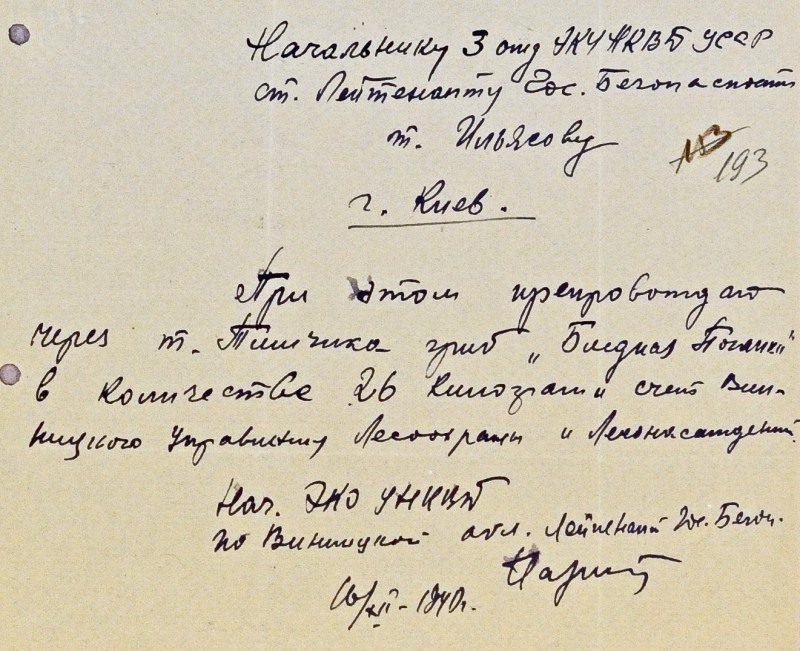 Начальнику 3 отд ЭКУ НКВД УССР
ст. Лейтенанту Гос. Безопасности
т. Ильясову
193
г. Киев.
При этом препровождаю
через т. гриб „Бледная Поганка"
в количестве 26 килограмм и счет Вин-
ницкого Управления Лесоохраны и Лесонасаждений.
Нач. ЭКО УНКВД
по Винницкой обл. Лейтенант Гос. Безоп.
16/XII-1940г.